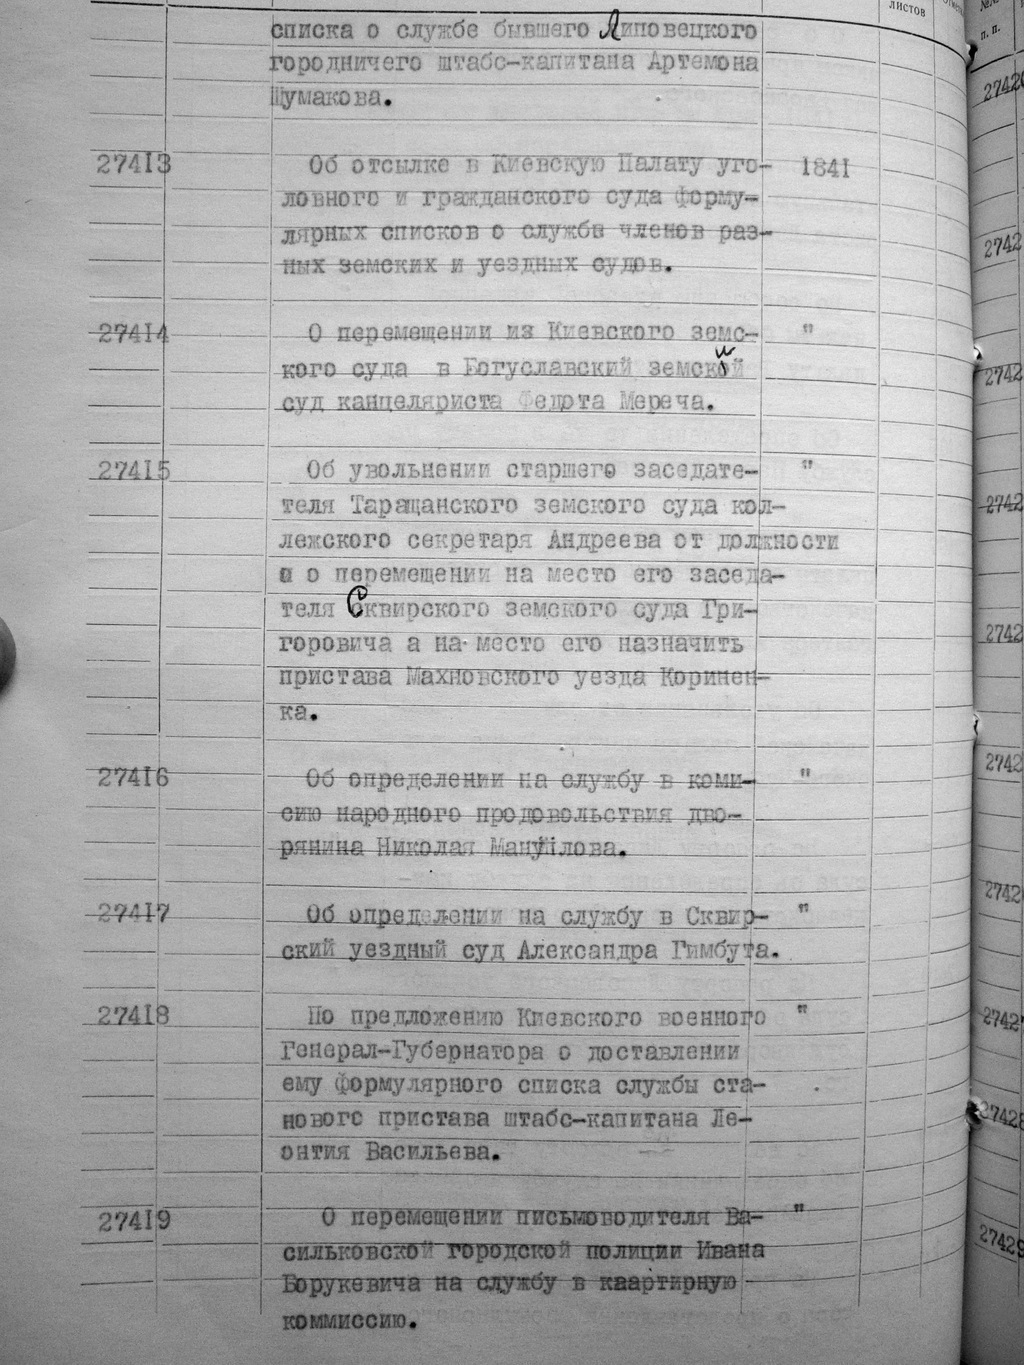 листов
№№
п. п.
списка о службе бывшего Липовецкого
городничего штабс-капитана Артемона
Шумакова.
27413 Об отсылке в Киевскую Палату уго- 1841
ловного и гражданского суда форму-
лярных списков о службе членов раз-
ных земских и уездных судов.
27414 О перемещении из Киевского земс- "
кого суда в Богуславский земский
суд канцеляриста Федота Мереча.
27415 Об увольнении старшего заседате- "
теля Таращанского земского суда кол-
лежского секретаря Андреева от должности
и о перемещении на место его заседа-
теля Сквирского земского суда Гри-
горовича а на место его назначить
пристава Махновского уезда Коринен-
ка.
27416 Об определении на службу в коми- "
сию народного продовольствия дво-
рянина Николая Мануйлова.
27417 Об определении на службу в Сквир- "
ский уездный суд Александра Гимбута.
27418 По предложению Киевского военного "
Генерал-Губернатора о доставлении
ему формулярного списка службы ста-
нового пристава штабс-капитана Ле-
онтия Васильева.
27419 О перемещении письмоводителя Ва- "
сильковской городской полиции Ивана
Борукевича на службу в кваартирную
коммиссию.